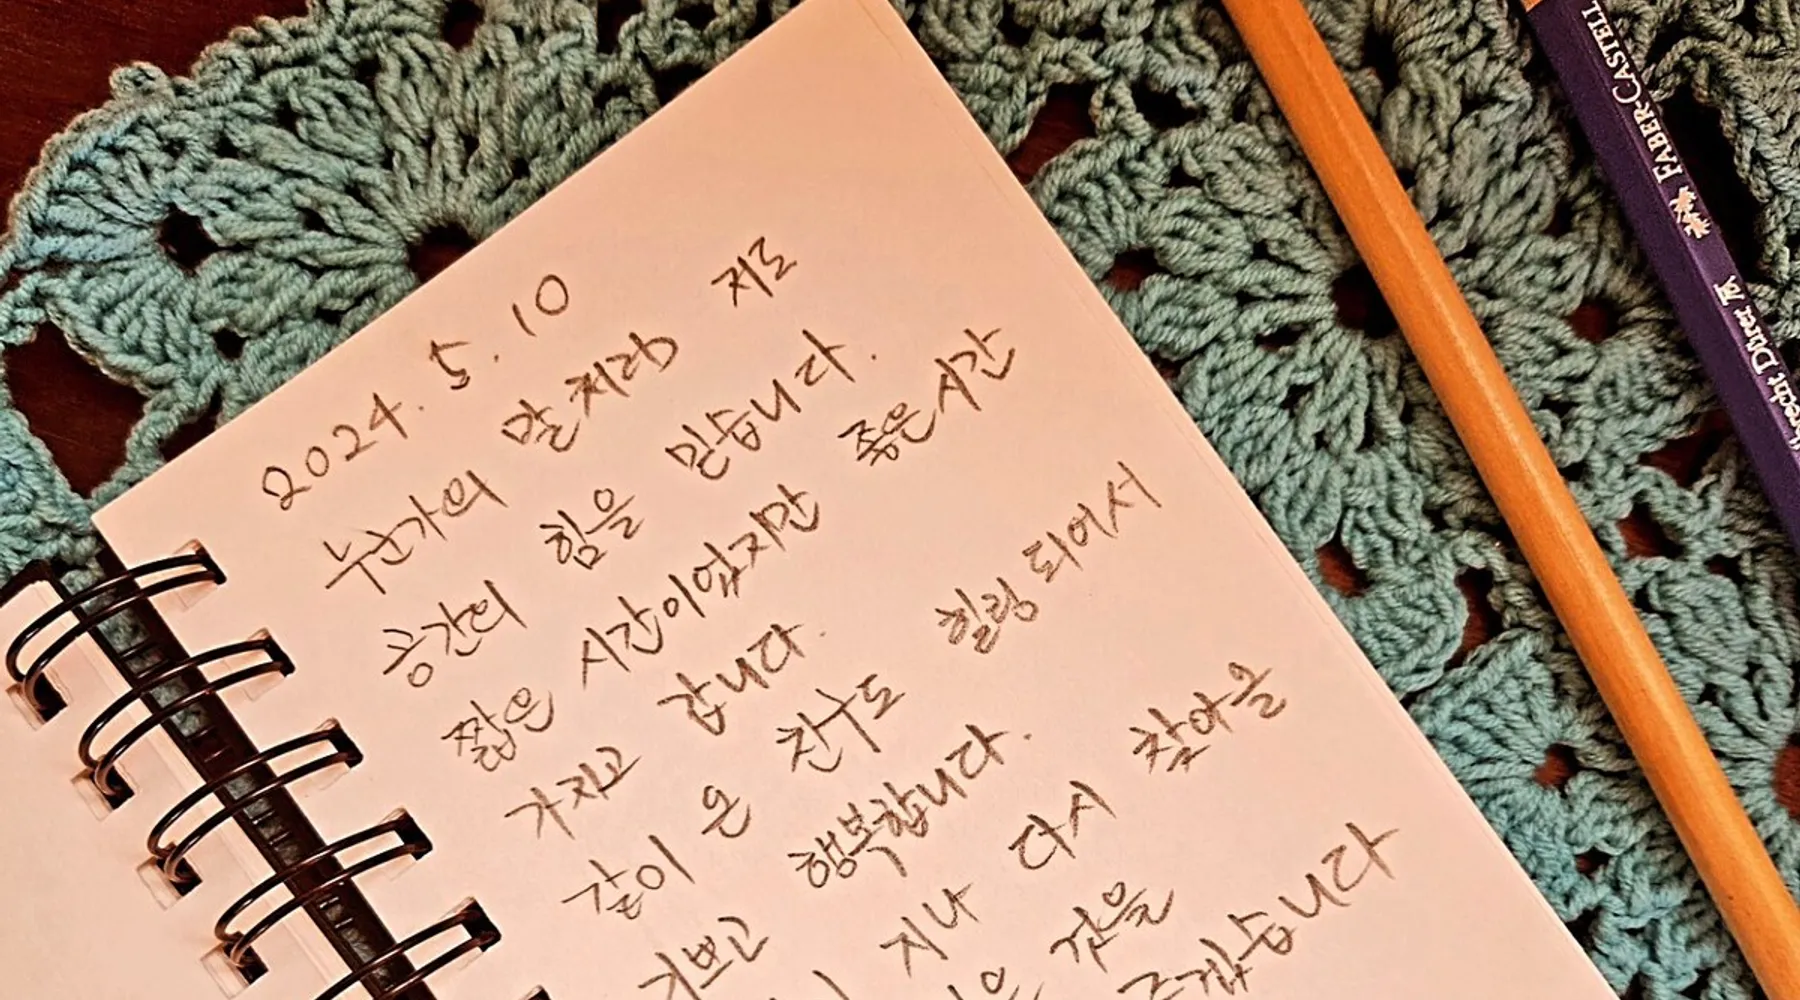 2024. 5. 10
누군가의 말처럼 저도
공간의 힘을 믿습니다.
짧은 시간이었지만 좋은 시간
가지고 갑니다.
같이 온 친구도 힐링 되어서
기쁘고 행복합니다.
지나 다시 찾아올
것을
FABER-CASTELL
Dürer